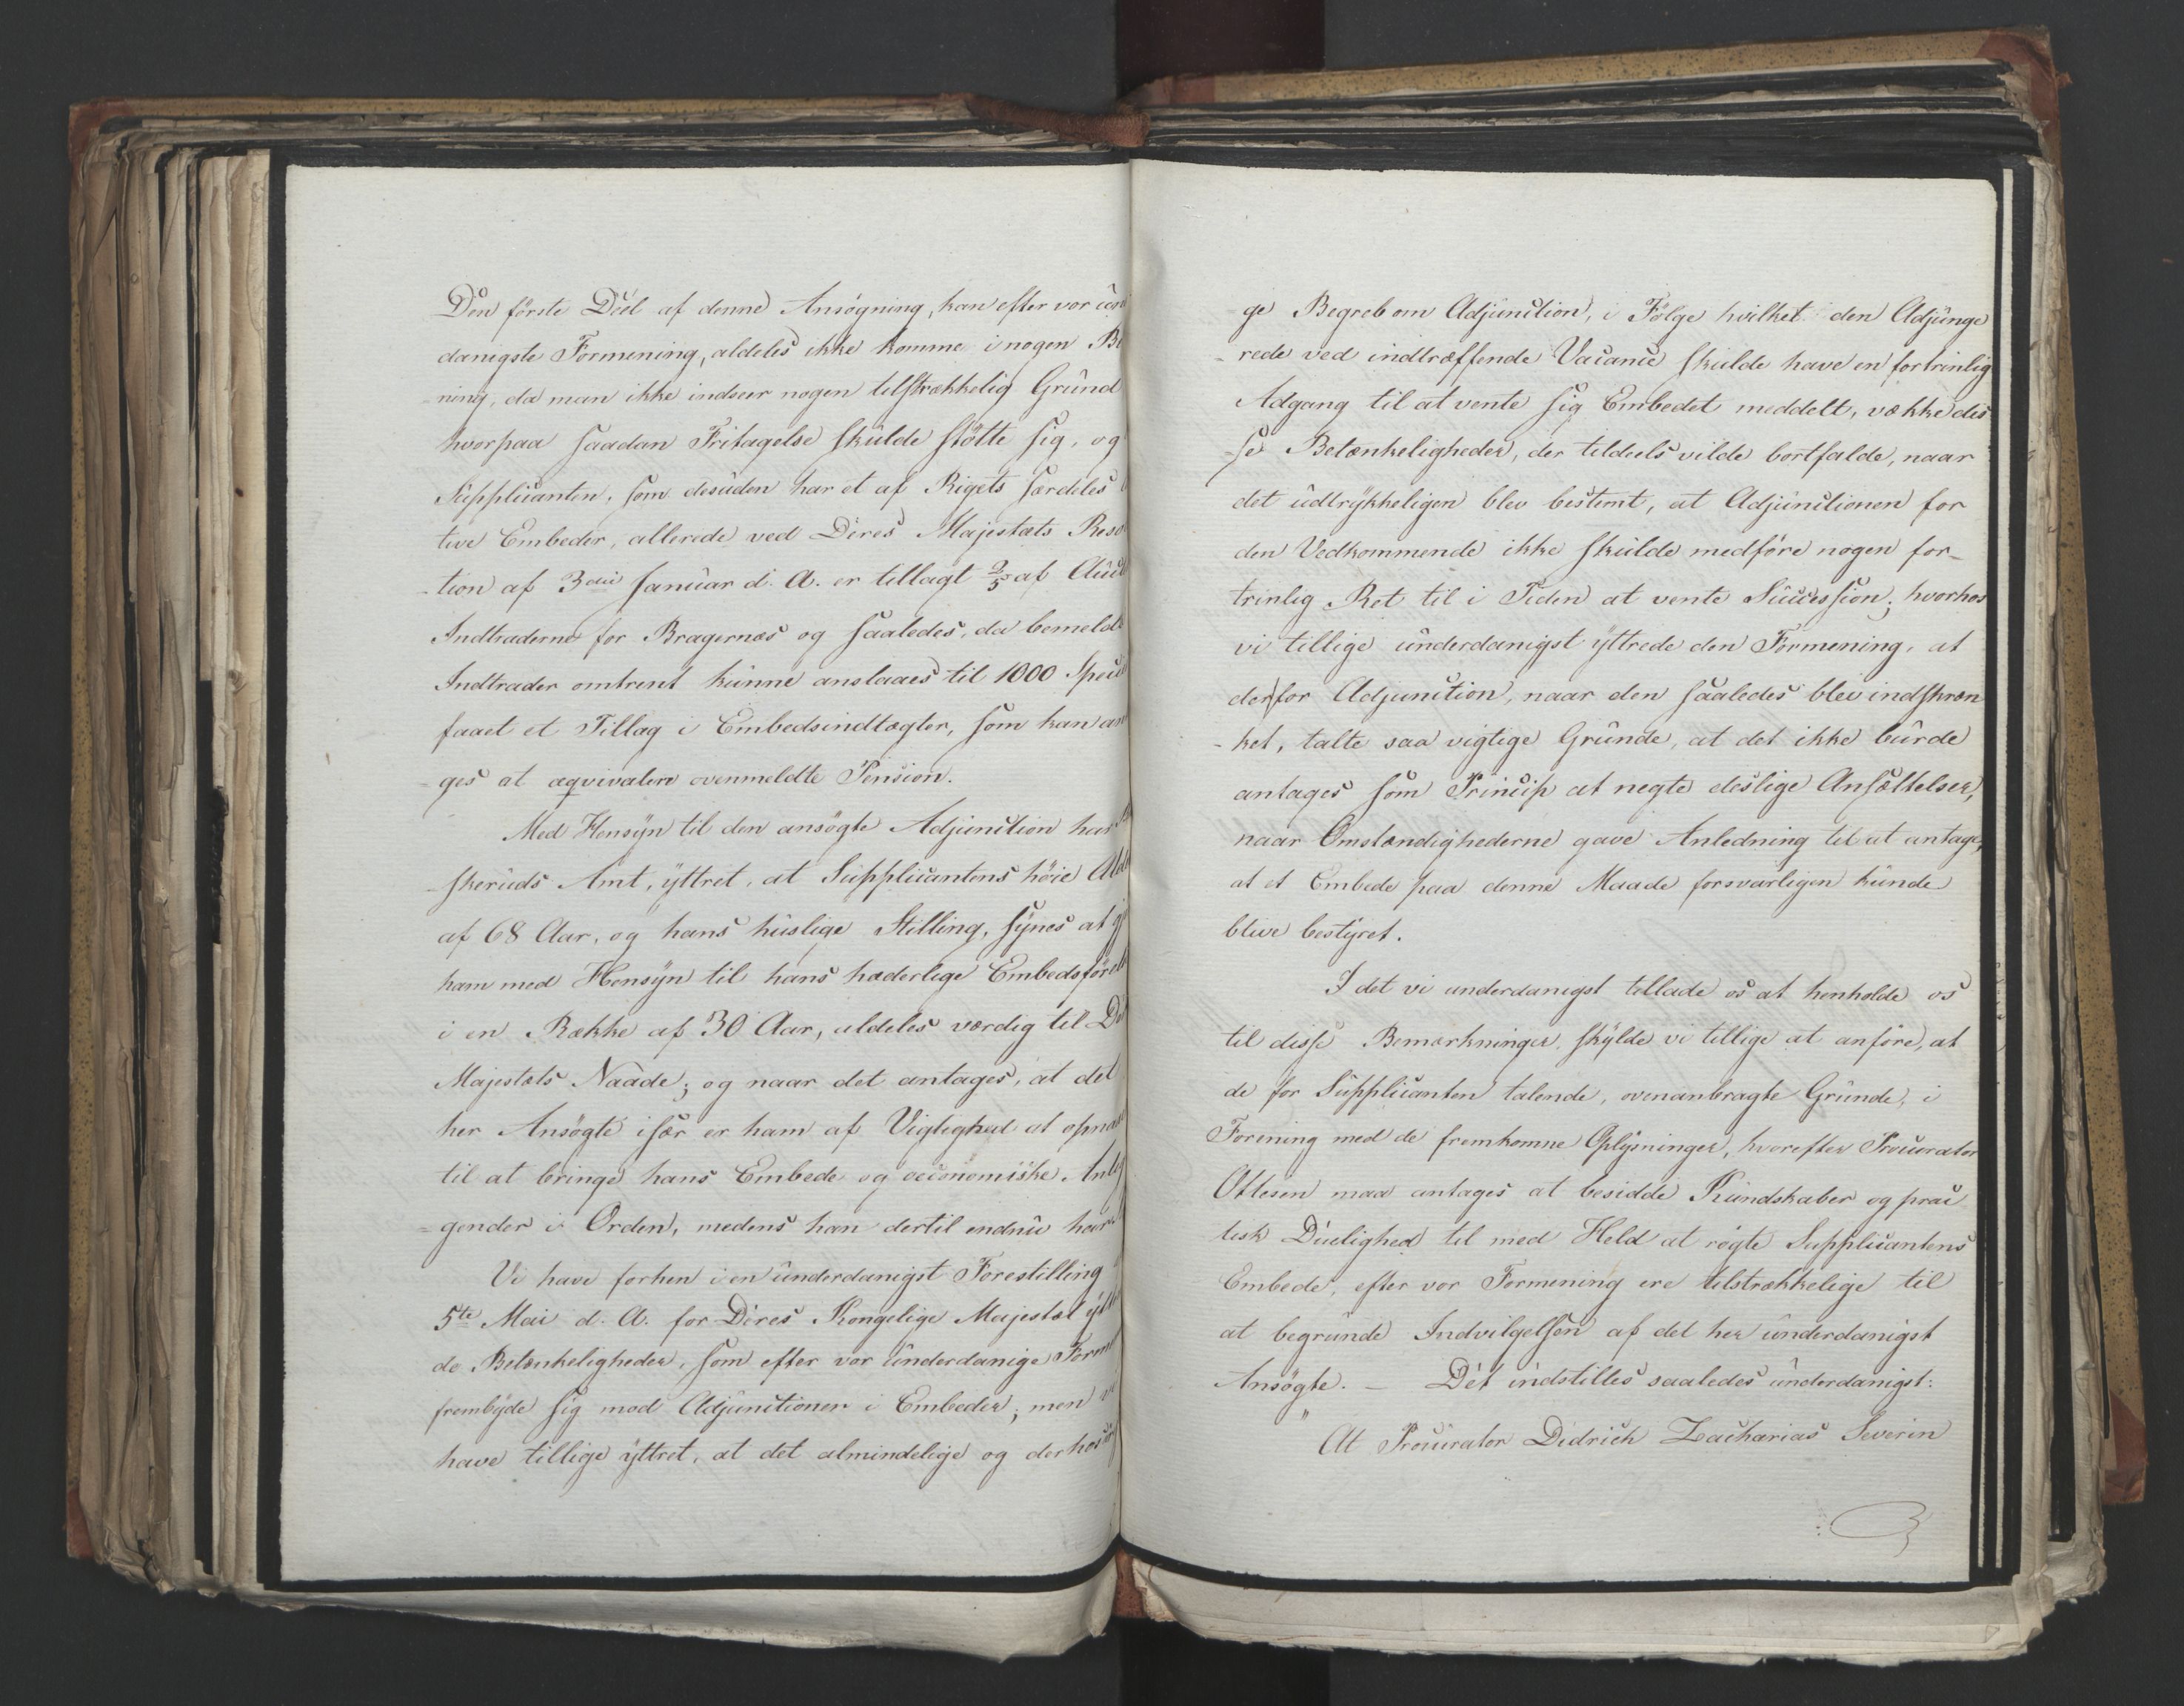 Den förste Deel af denne Ansögning, kan efter vor un
danigste Formening, aldeles ikke komme i nogen Be
-ning, da man ikke indseer nogen tilstrækkelig Grund
hvorpaa saadan Fritagelse skulde stötte sig, og
Supplicanten, som desuden har et af Rigets særdeles
tive Embeder, allerede ved Deres Majestæts Reso
-tion af 3die Januar d. A. er tillagt 2/5 af Auct
Indtraderne for Bragernæs og saaledes, da bemeldte
Indtrader omtrent kunne anslaaes til 1000 Speci
faaet et Tillag i Embedsindtægter, som kan an
-ges at æqvivalere ovenmeldte Pension.
Med Hensyn til den ansögte Adjunction har
-skeruds Amt, yttret, at Supplicantens höie Alde
af 68 Aar, og hans huslige Stilling, synes at gj
ham med Hensyn til hans hæderlige Embedsförel
i en Række af 30 Aar, aldeles værdig til De
Majestæts Naade; og naar det antages, at det
her Ansögte især er ham af Vigtighed at opnaae
til at bringe hans Embede og oeconomiske Anlig
-gender i Orden, medens han dertil endnu har
Vi have forhen i en underdanigst Forestilling
5te Mai d. A. for Deres Kongelige Majestæt ytt
de Betænkeligheder, som efter vor underdanige Form
frembyde sig mod Adjunctioner i Embeder; men vi
have tillige yttret, at det almindelige og derhos
ge Begreb om Adjunction, i Fölge hvilket den Adjunge
-rede ved indtræffende Vacance skulde have en fortrinlig
Adgang til at vente sig Embedet meddelt, vækkede dis
-se Betænkeligheder, der tildeels vilde bortfalde, naar
det udtrykkeligen blev bestemt, at Adjunctionen for
den Vedkommende ikke skulde medföre nogen for-
trinlig Ret til i Tiden at vente Succession; hvorhos
vi tillige underdanigst yttrede den Formening, at
der for Adjunction, naar den saaledes blev indskræn
-ket, talte saa vigtige Grunde, at det ikke burde
antages som Princip at negte deslige Ansættelser,
naar Omstændighederne gave Anledning til at antage,
at et Embede paa denne Maade forsvarligen kunde
blive bestyret.
I det vi underdanigst tillade os at henholde os
til disse Bemærkninger, skylde vi tillige at anföre, at
de for Supplicanten talende, ovenanbragte Grunde, i
Forening med de fremkomne Oplysninger, hvorefter Procurator
Ottesen maa antages at besidde Kundskaber og prac
tisk Duelighed til med Held at rögte Supplicantens
Embede, efter vor Formening ere tilstrækkelige til
at begrunde Indvilgelsen af det her underdanigst
Ansögte. — Det indstilles saaledes underdanigst:
" At Procurator Didrich Zacharias Severin